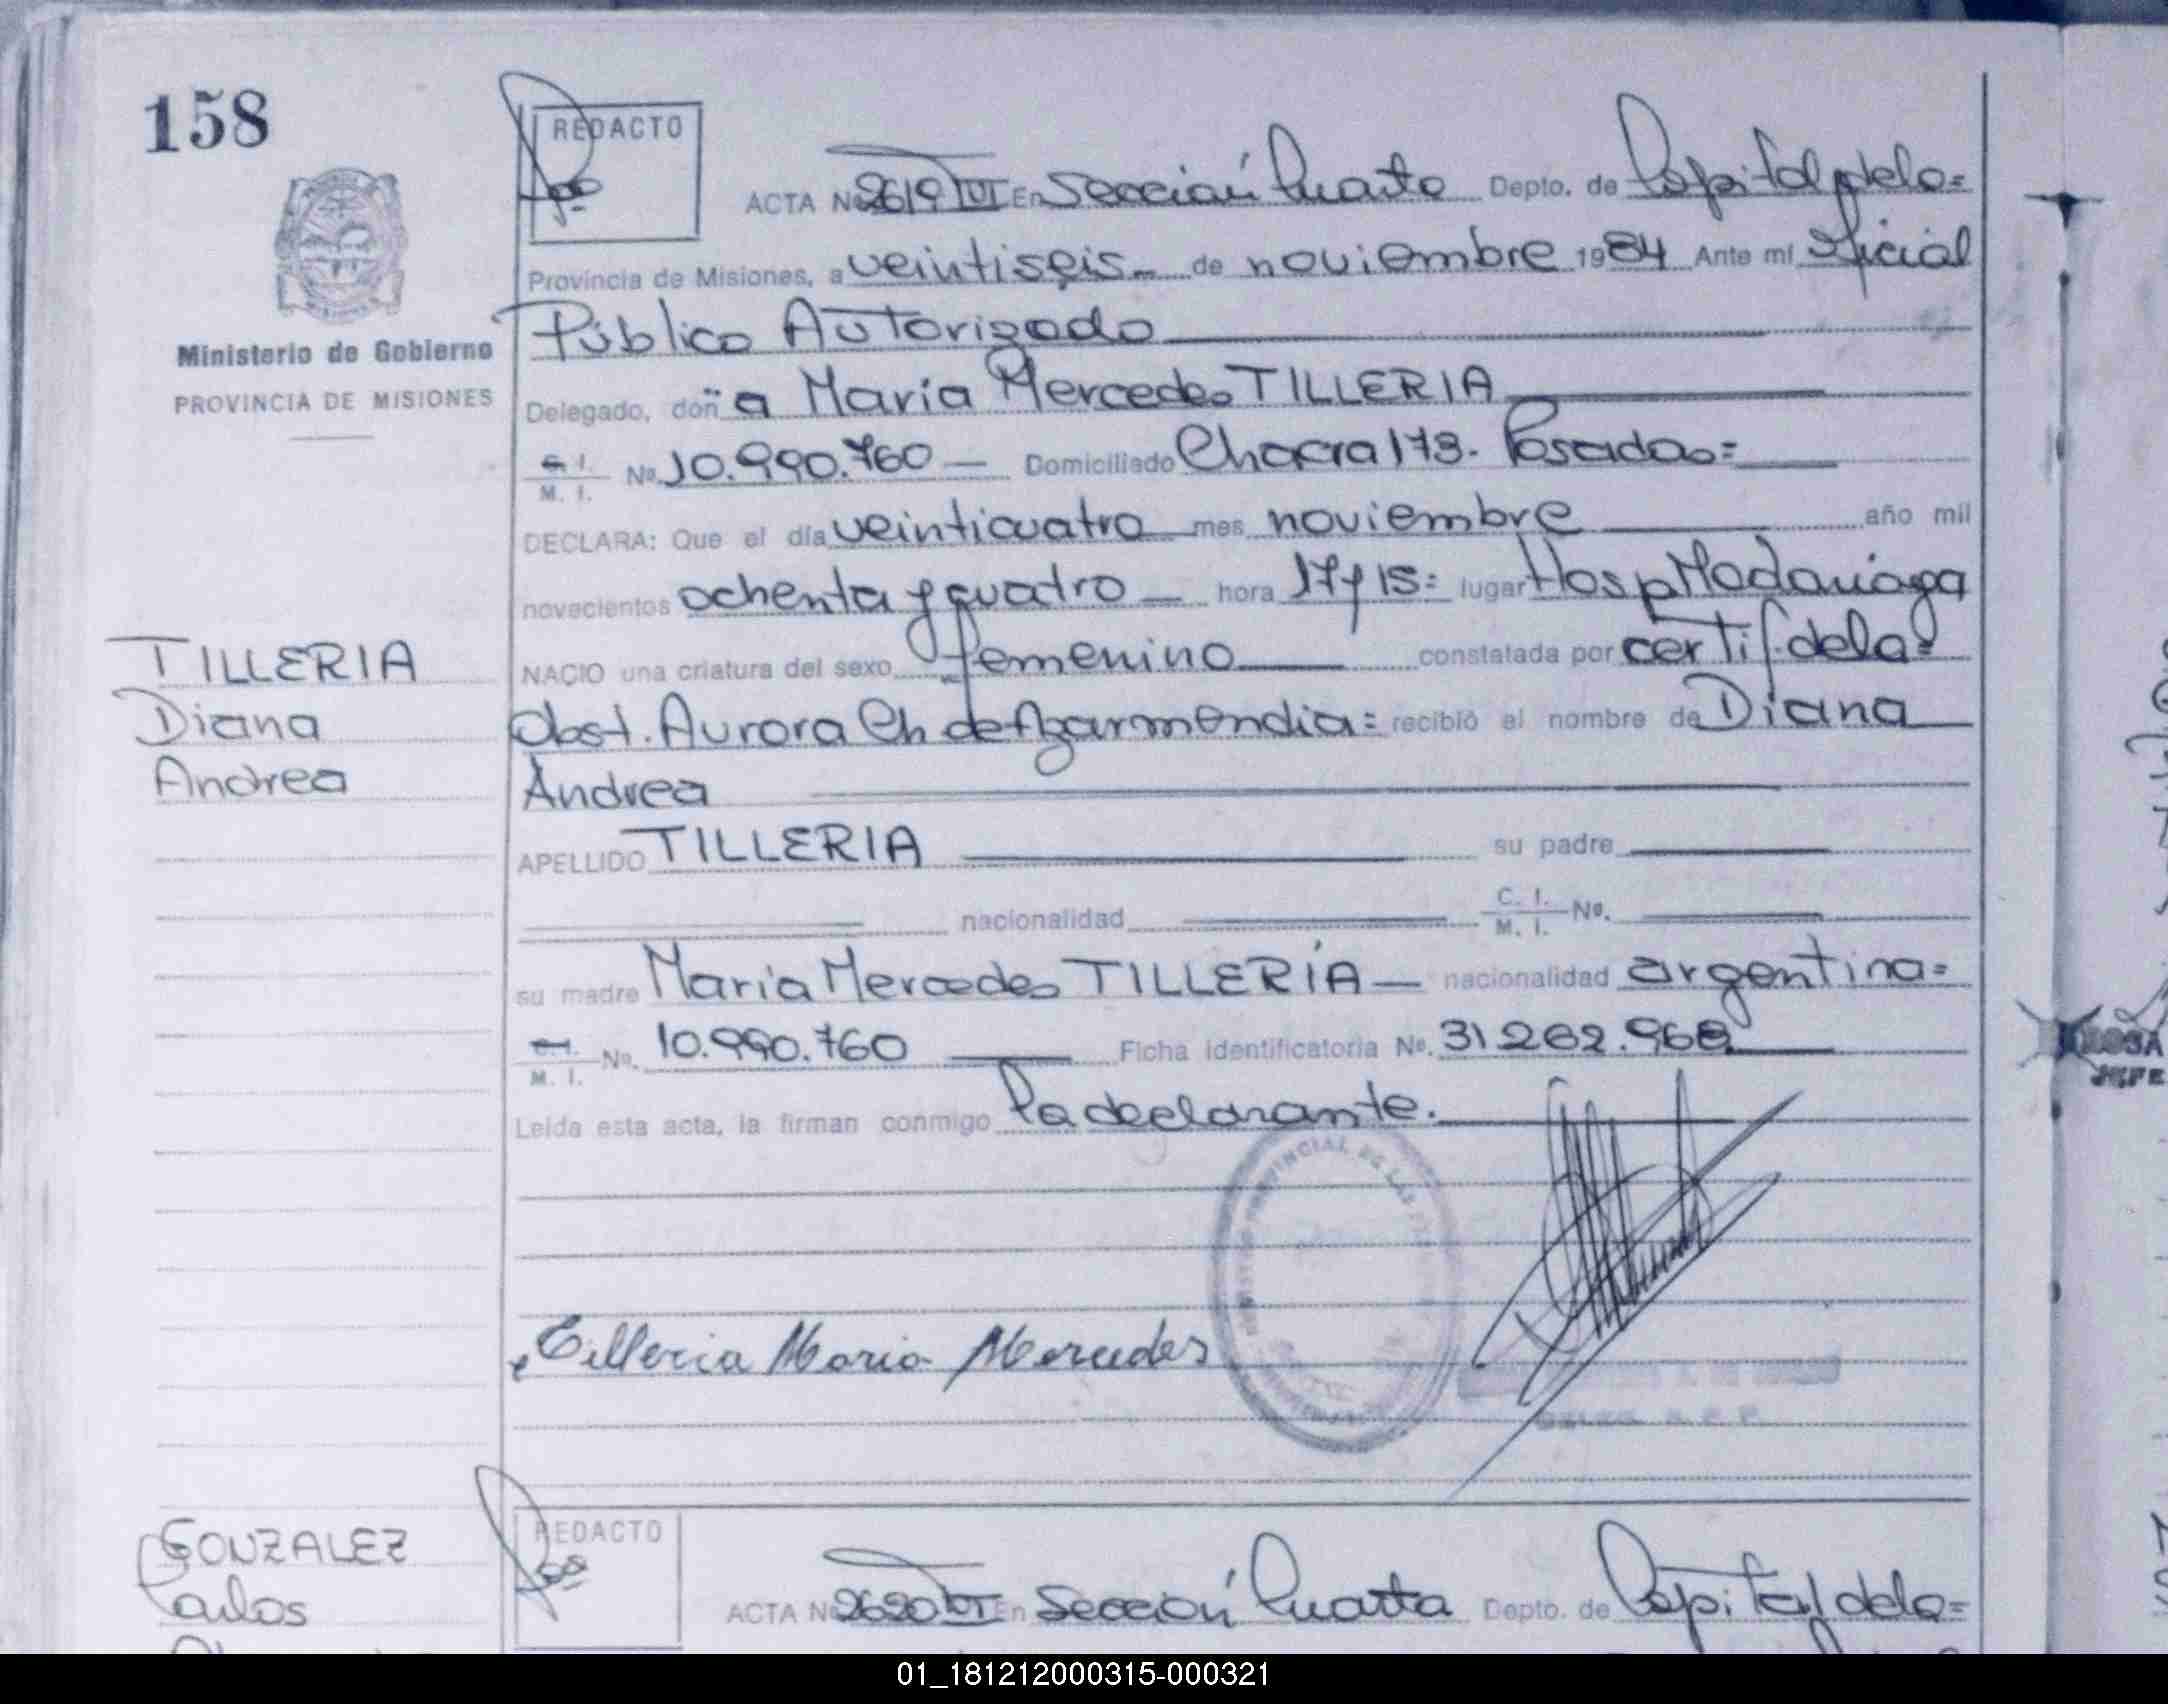 158
REDACTO
ACTA Nº 2619 TVI En Sección Cuarta Depto. de Capital de la=
Provincia de Misiones, a veintiseis de noviembre 1984 Ante mi Oficial
Ministerio de Gobierno
PROVINCIA DE MISIONES
Público Autorizado
Delegado, doñ a María Mercedes TILLERIA
C. I.
M. I. Nº 10.990.760 Domiciliado Chacra 173. Posadas=
DECLARA: Que el día veinticuatro mes noviembre año mil
novecientos ochenta y cuatro hora 17 y 15= lugar Hosp Madariaga
NACIO una criatura del sexo femenino constatada por certif. de la=
Obst. Aurora Ch de Azarmendia= recibió el nombre de Diana
Andrea
TILLERIA
Diana
Andrea
APELLIDO TILLERIA su padre
nacionalidad C. I.
M. I. Nº.
su madre María Mercedes TILLERÍA nacionalidad argentina=
C. I.
M. I. Nº. 10.990.760 Ficha identificatoria Nº. 31262.968
Leida esta acta, la firman conmigo la declarante.
PROVINCIAL DE LAS
Tilleria Maria Mercedes
GONZALEZ
Carlos
REDACTO
ACTA Nº 2620 TVI En Sección Cuarta Depto. de Capital de la=
ROSA
JEFE
01_181212000315-000321